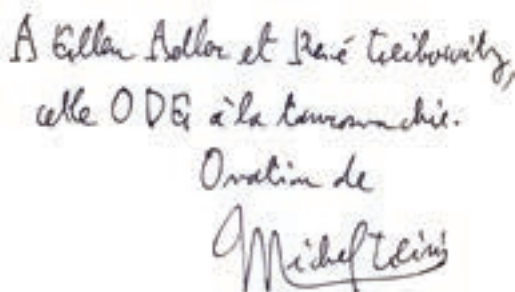 À Ellen Adler et René Leibowitz,
cette ODE à la tauromachie.
Ovation de
Michel Leiris